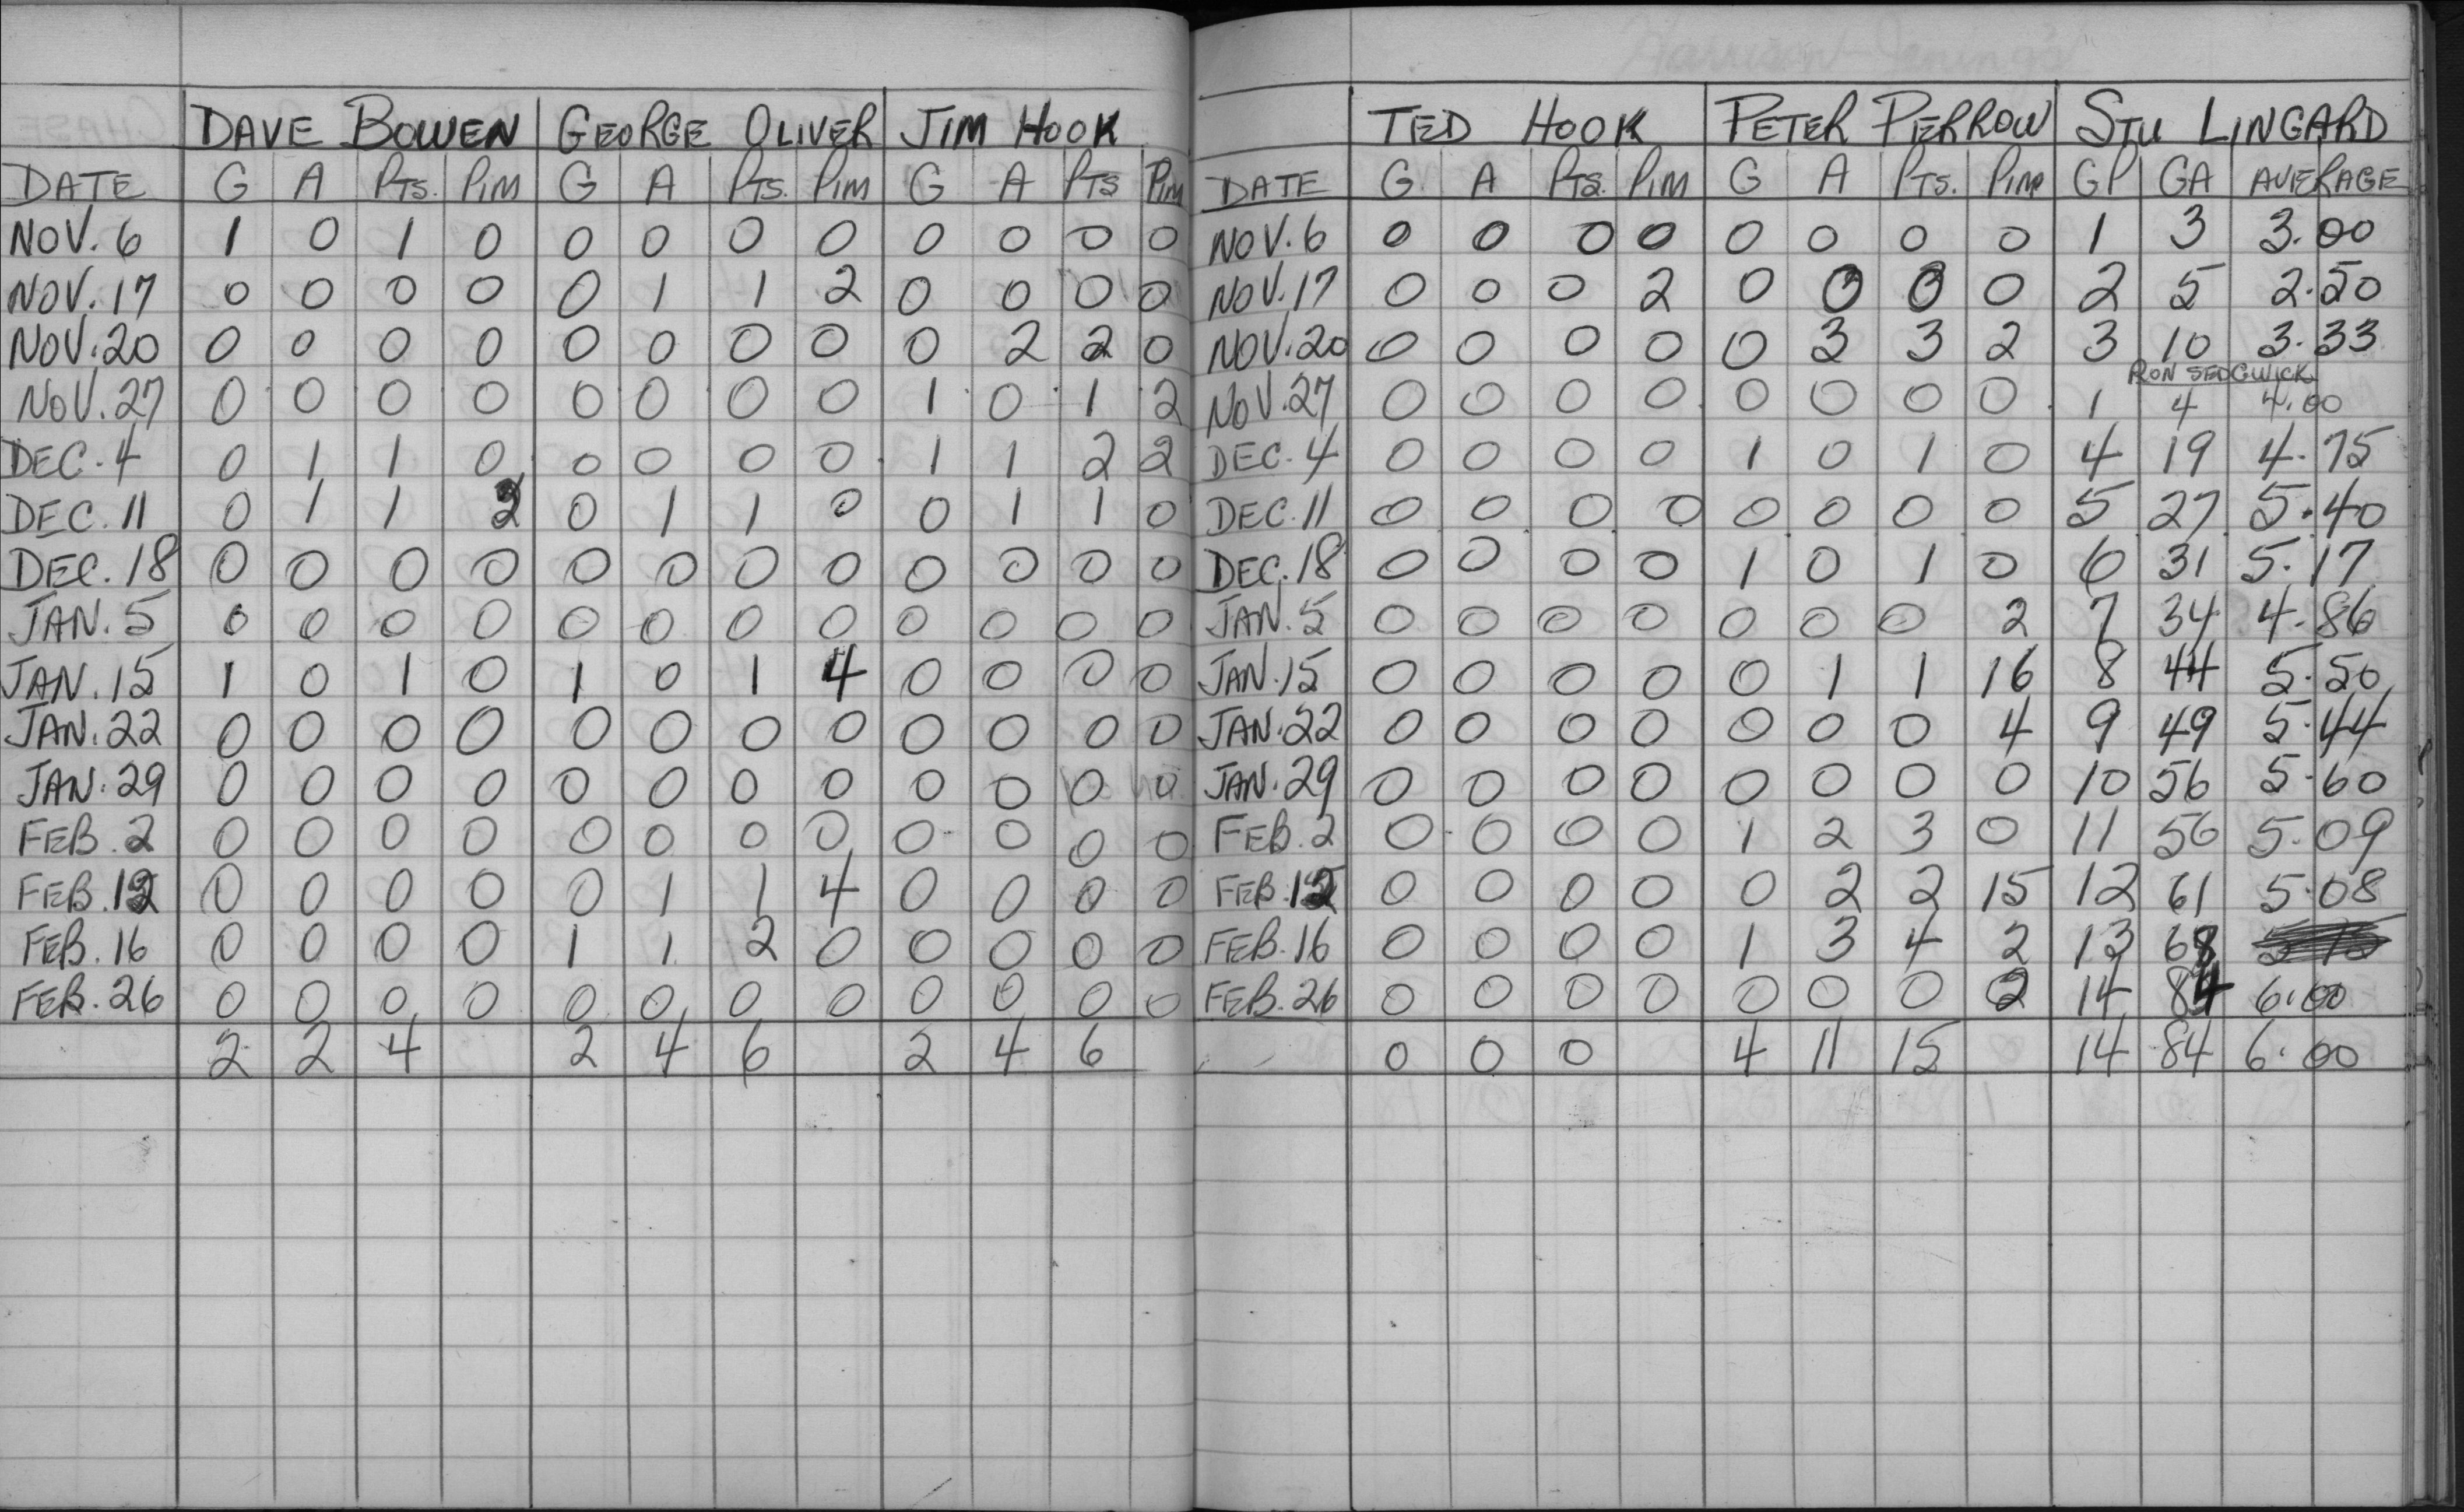 DAVE BOWEN GEORGE OLIVER JIM HOOK
DATE G A PTS. PIM G A PTS. PIM G A PTS PIM
NOV. 6 1 0 1 0 0 0 0 0 0 0 0 0
NOV. 17 0 0 0 0 0 1 1 2 0 0 0 0
NOV. 20 0 0 0 0 0 0 0 0 0 2 2 0
NOV. 27 0 0 0 0 0 0 0 0 1 0 1 2
DEC. 4 0 1 1 0 0 0 0 0 1 1 2 2
DEC. 11 0 1 1 2 0 1 1 0 0 1 1 0
DEC. 18 0 0 0 0 0 0 0 0 0 0 0 0
JAN. 5 0 0 0 0 0 0 0 0 0 0 0 0
JAN. 15 1 0 1 0 1 0 1 4 0 0 0 0
JAN. 22 0 0 0 0 0 0 0 0 0 0 0 0
JAN. 29 0 0 0 0 0 0 0 0 0 0 0 0
FEB. 2 0 0 0 0 0 0 0 0 0 0 0 0
FEB. 12 0 0 0 0 0 1 1 4 0 0 0 0
FEB. 16 0 0 0 0 1 1 2 0 0 0 0 0
FEB. 26 0 0 0 0 0 0 0 0 0 0 0 0
2 2 4 2 4 6 2 4 6
TED HOOK PETER PERROW STU LINGARD
DATE G A PTS. PIM G A PTS. PIM GP GA AVERAGE
NOV. 6 0 0 0 0 0 0 0 0 1 3 3.00
NOV. 17 0 0 0 2 0 0 0 0 2 5 2.50
NOV. 20 0 0 0 0 0 3 3 2 3 10 3.33
RON SEDGWICK
NOV. 27 0 0 0 0 0 0 0 0 1 4 4.00
DEC. 4 0 0 0 0 1 0 1 0 4 19 4.75
DEC. 11 0 0 0 0 0 0 0 0 5 27 5.40
DEC. 18 0 0 0 0 1 0 1 0 6 31 5.17
JAN. 5 0 0 0 0 0 0 0 2 7 34 4.86
JAN. 15 0 0 0 0 0 1 1 16 8 44 5.50
JAN. 22 0 0 0 0 0 0 0 4 9 49 5.44
JAN. 29 0 0 0 0 0 0 0 0 10 56 5.60
FEB. 2 0 0 0 0 1 2 3 0 11 56 5.09
FEB. 12 0 0 0 0 0 2 2 15 12 61 5.08
FEB. 16 0 0 0 0 1 3 4 2 13 68
FEB. 26 0 0 0 0 0 0 0 2 14 84 6.00
0 0 0 4 11 15 14 84 6.00